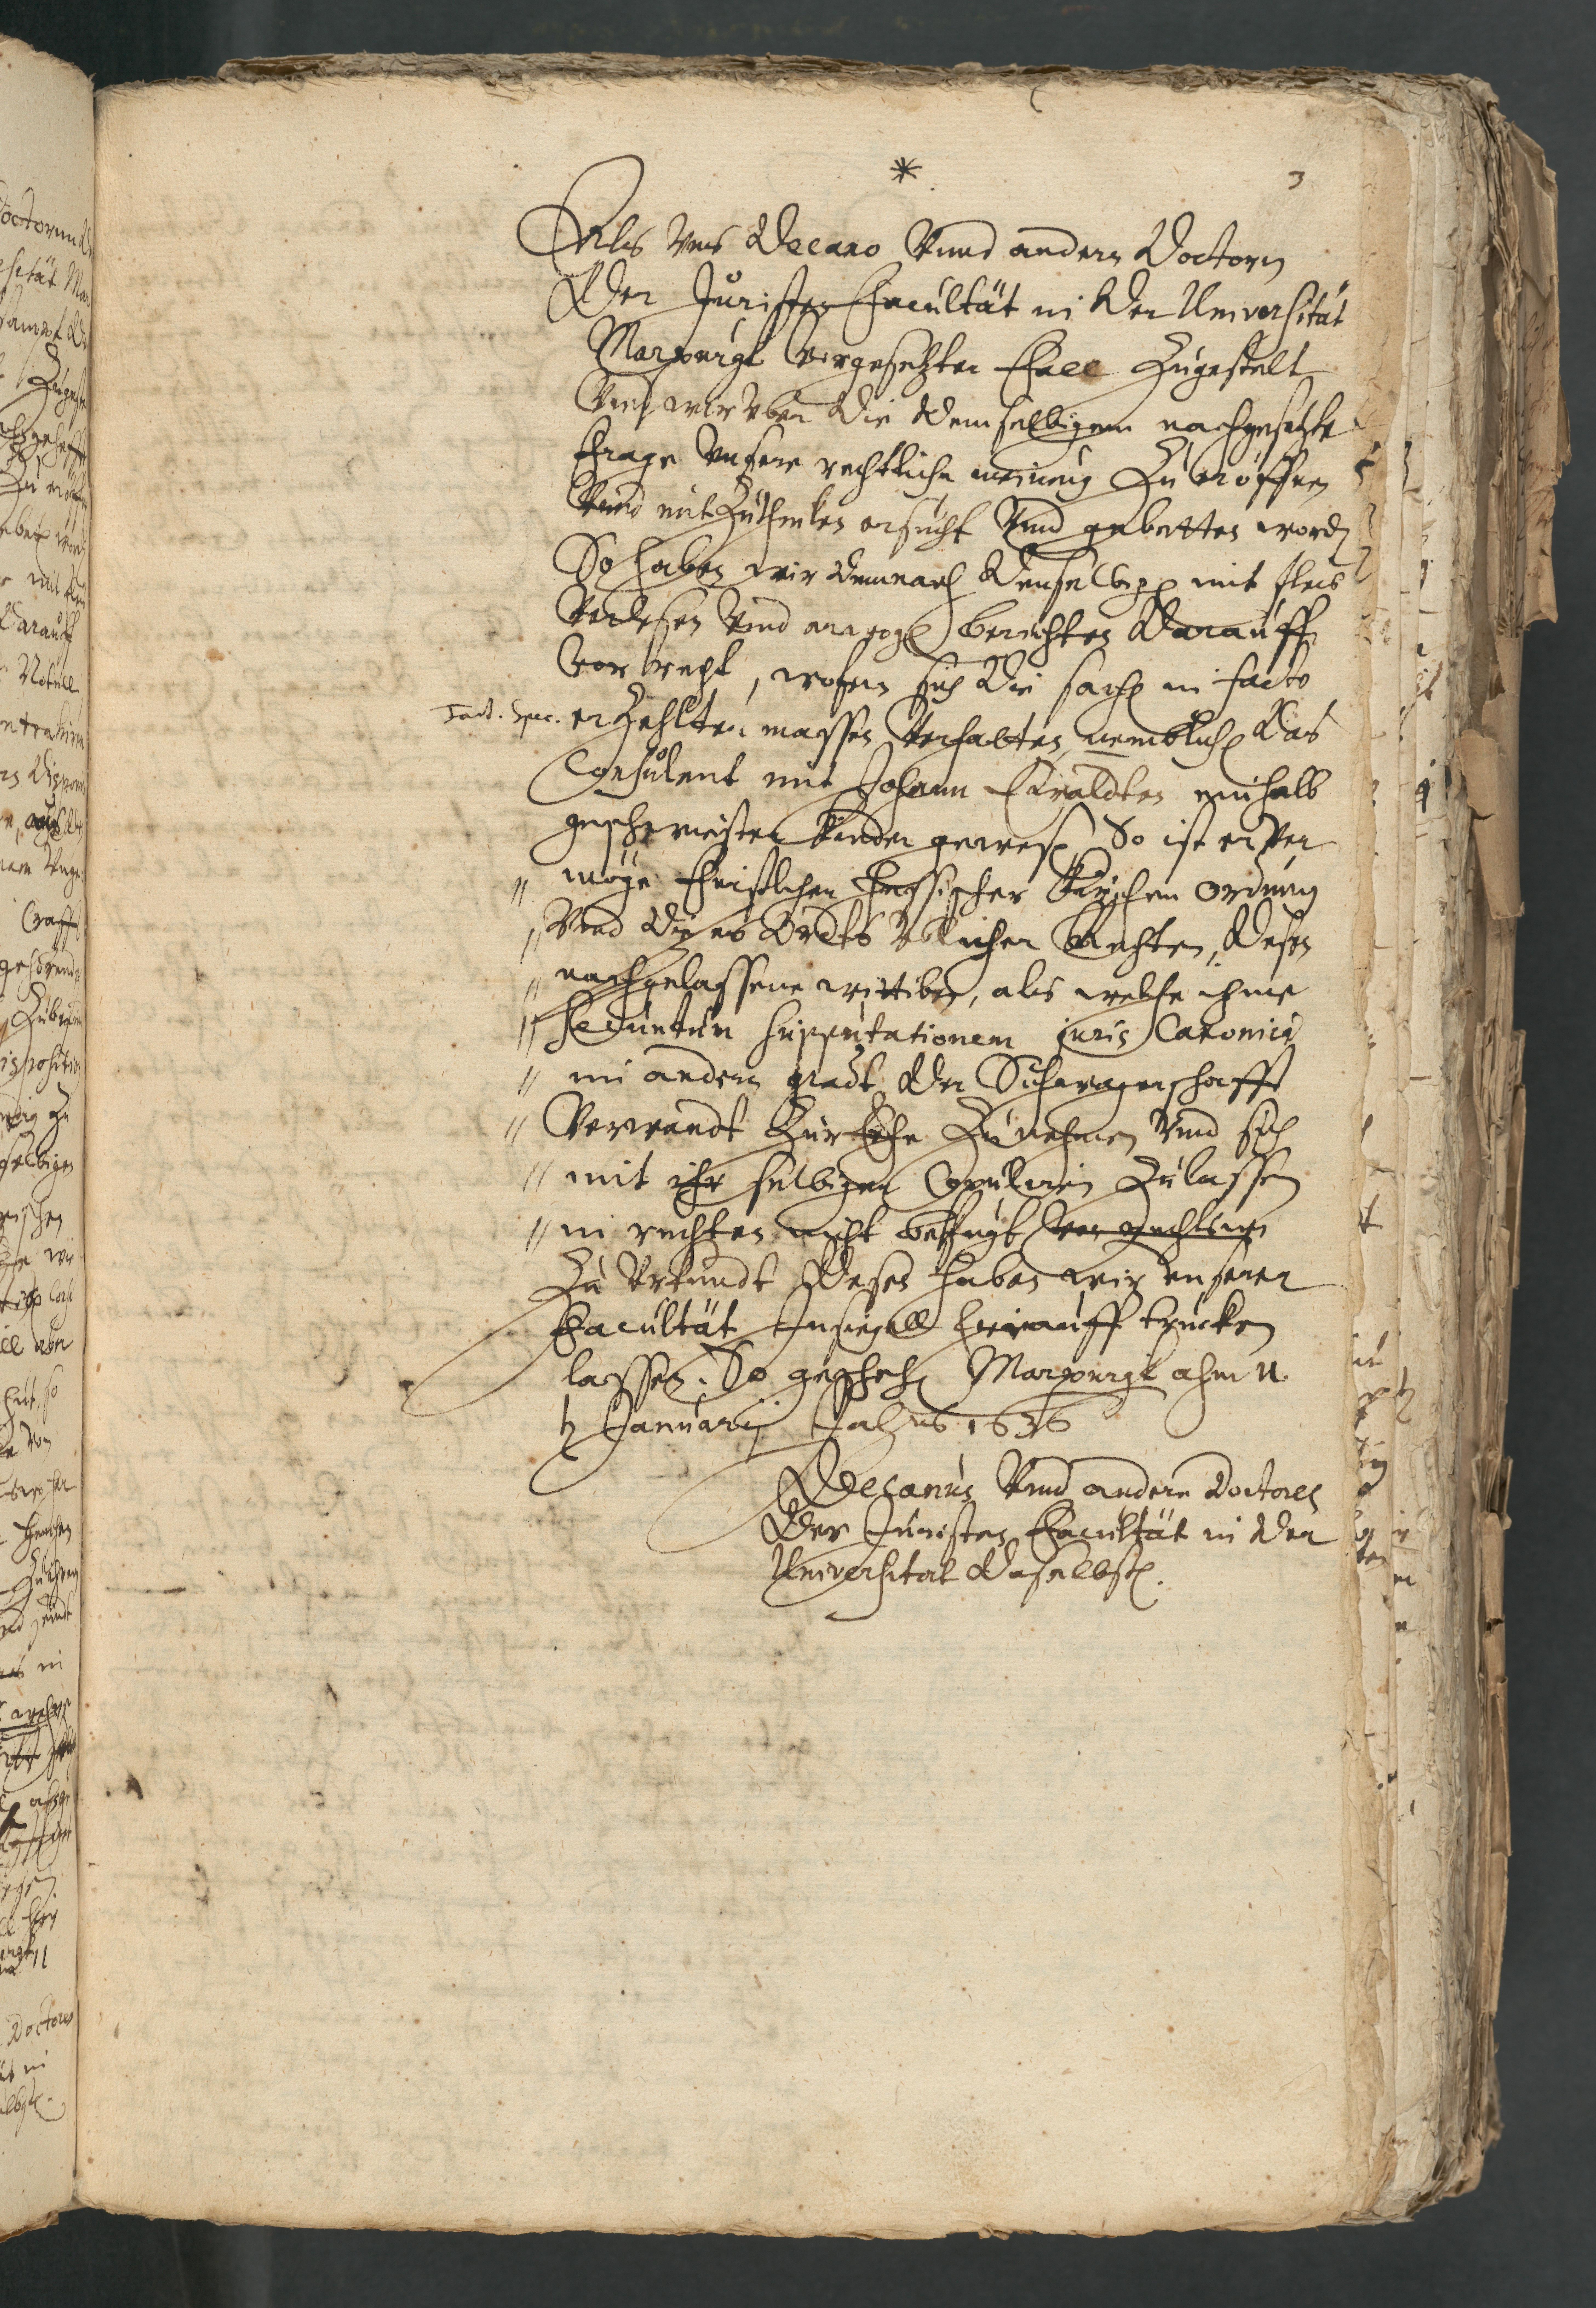 *
3
Als Vns Decano Vnnd andern Doctorn
Der Juristen Facultät in Der Universität
Marpurgk Vorgesetzter Fall Zugestelt
Vnd wir vber Die Demselbigem nachgesetzte
Frage Vnsere rechtliche meinung Zu eröffnen
Vnnd mitZutheilen ersucht Vnnd gebetten word
So haben wir Demnach Denselbigen mit fleis
Verlesen Vnnd erwogen berichten Darauff
Vor recht, wofern sich Die sach in facto
Fact. Spec. erZehlter massen Verhalten, nemblich Das
Consulent mit Johann Ewaldten einhalb
geschwister Kinder gewesen, So ist er Ver
" möge Christlicher Hessischer Kirchen Ordnung
" Vnd Dieses Ordts Vblicher Rechten, Desen
" nachgelassene wittiben, als welche ihme
" secundum supputationem juris Canonici
" im andern gradt Der Schwagerschafft
" Verwandt Zur Ehe Zu nehmen Vnd sich
" mit ihr selbigen Copuliren Zulassen
" in rechten nicht befugt Von Rechts we
Zu Vrkundt Deses haben wir unserer
Facultät Insiegell hierauff trucken
lassen. So gescheh Marpurgk ahm 11.
t Januarij Jahrs 1636
Decanus Vnnd andere Doctores
Der Juristen Facultät in Der
Universitat Daselbst.